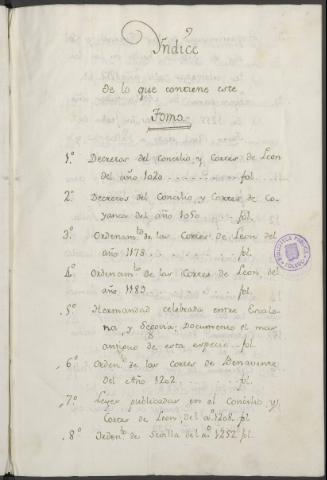 Yndice
De lo que contiene este
Tomo
1º Decretos del Concilio, y Cortes de Leon
del año 1020 . . . . . . . . . . . . fol.
2º Decretos del Concilio y Cortes de Co-
yanca del año 1050 . . . . . fol.
3º Ordenamto. de las Cortes de Leon del
año 1178 . . . . . . . . . . . . . . . fol.
4º Ordenamto. de las Cortes de Leon, del
año 1189 . . . . . . . . . . . . . . . fol.
5º Hermandad celebrada entre Escalo-
na, y Segovia; Documento el mas
antiguo de esta especie . . fol.
6º Orden.to de las Cortes de Benavente
del Año 1202 . . . . . . . . . . . . fol.
7º Leyes publicadas en el Concilio, y
Cortes de Leon, del aº. 1208. fol.
8º Orden.to de Sevilla del aº. 1252 fol.
BIBLIOTECA PUBLICA
TOLEDO